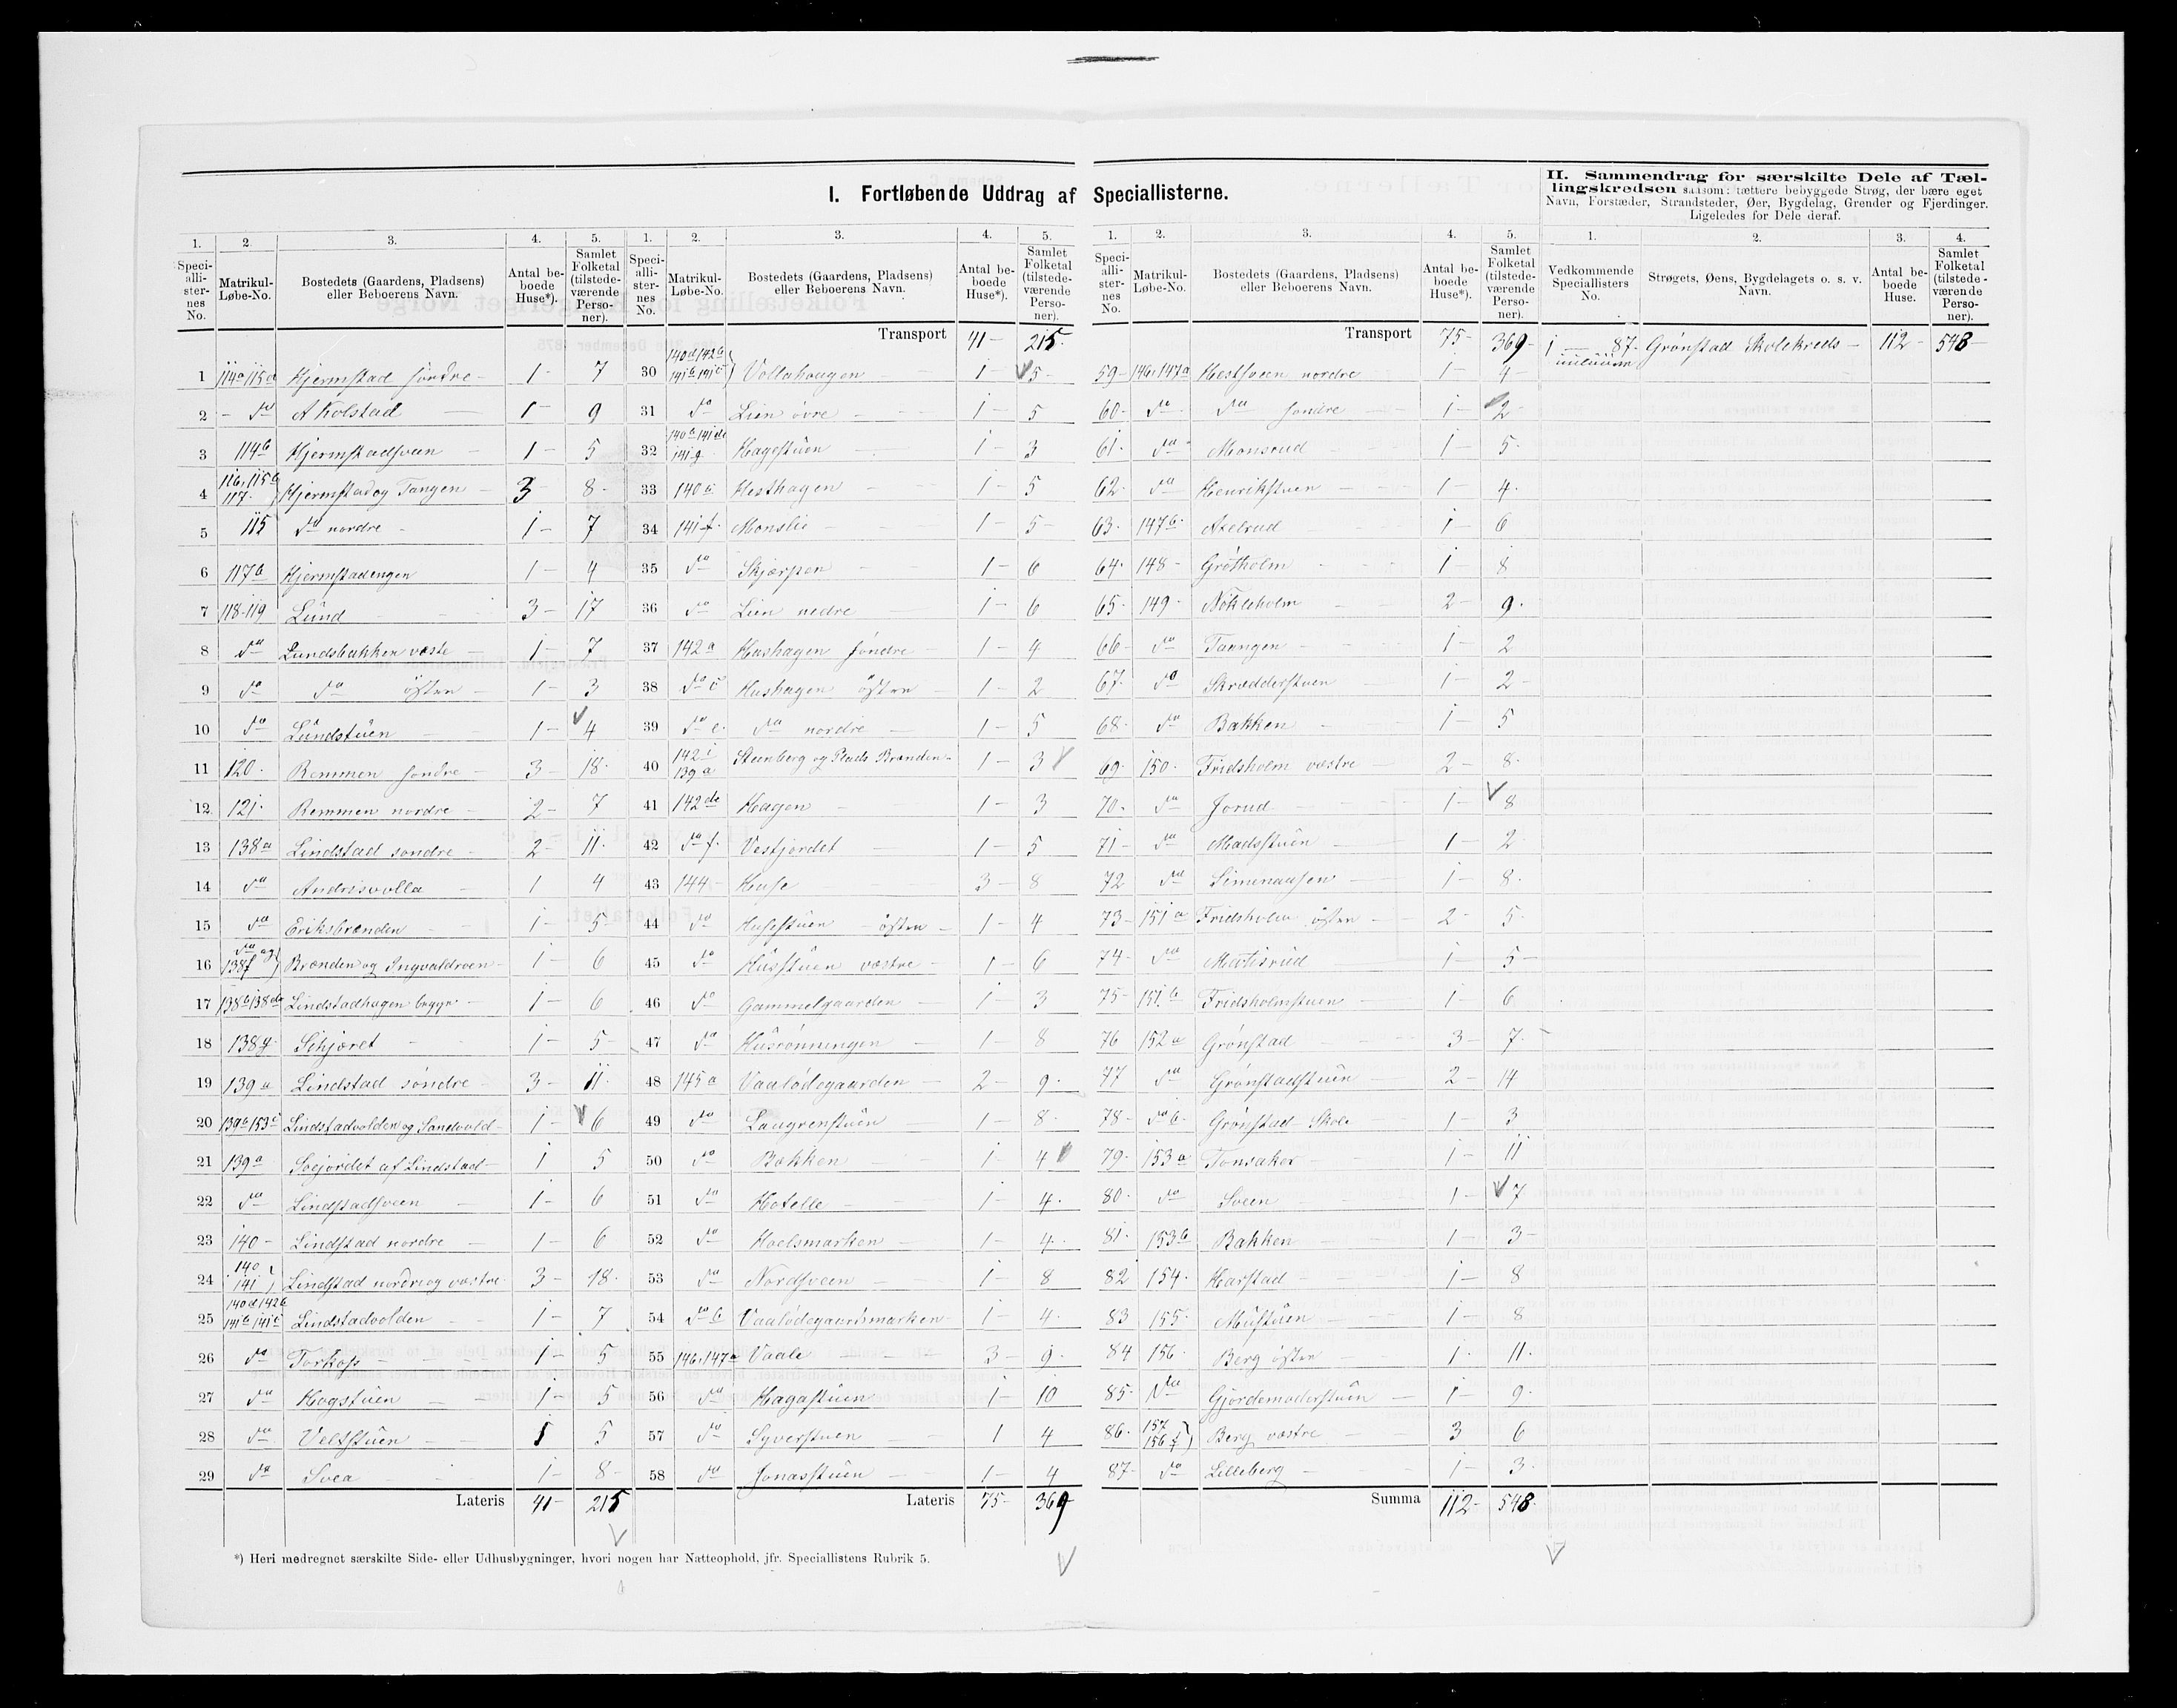 I. Fortløbende Uddrag af Speciallisterne.
1. 2. 3. 4. 5.
Specialli-
ster-
nes
No.
Matrikul-
Løbe-No.
Bostedets (Gaardens, Pladsens)
eller Beboerens Navn.
Antal be-
boede
Huse*).
Samlet
Folketal
(tilstede-
værende
Perso-
ner).
1 114a 115a Hjermstad søndre 1 7
2 do A Kolstad 1 9
3 114b Hjermstadsveen 1 5
4 116, 115b 117 Hjermstad og Tangen 3 8
5 115 do nordre 1 7
6 117b Hjermstadengen 1 4
7 118-119 Lund 3 17
8 do Lundsbakken væste 1 7
9 do do østen 1 3
10 do Lundstuen 1 4
11 120. Remmen søndre 3 18
12. 121. Remmen nordre 2 7
13 138a Lindstad søndre 2 11
14 do Andrisvolla 1 4
15 do Eriksbrænden 1 5
16 do og 138f Brænden og Ingvaldroen 1 6
17 138b 138de Lindstadhagen 1 6
18 138g Schjøret 1 5
19 139a Lindstad søndre 3 11
20 139b 153c Lindstadvolden og Sandvold 1 6
21 139a Soejordet af Lindstad 1 5
22 do Lindstadsveen 1 6
23 140 Lindstad nordre 1 6
24 140 141 Lindstad nordre og væstre 3 18
25 140d 142b 141b 141c Lindstadvolden 1 7
26 do Torkop 1 5
27 do Hagstuen 1 5
28 do Veltstuen 1 5
29 do Svea 1 8
Lateris 41 215
1. 2. 3. 4. 5.
Speci-
alli-
ster-
nes
No.
Matrikul-
Løbe-No.
Bostedets (Gaardens, Pladsens)
eller Beboerens Navn.
Antal be-
boede
Huse*).
Samlet
Folketal
(tilstede-
værende
Perso-
ner).
Transport 41 215
30 140d 142b 141b 141c Vollahaugen 1 5
31 do Lien øvre 1 5
32 140b 141de 141g Hagestuen 1 3
33 140c Hesthagen 1 5
34 141f. Monslie 1 5
35 do Skjærpen 1 6
36 do Lien nedre 1 6
37 142a Hushagen søndre 1 4
38 do c Hushagen østen 1 2
39 do e. do nordre 1 5
40 142i 139a Steenberg og Plads Brænden 1 3
41 142de Hagen 1 3
42 do f. Vestjordet 1 5
43 144 Huse 3 8
44 do Husestuen østen 1 4
45 do Husstuen væstre 1 6
46 do Gammelgaarden 1 3
47 do Husrønningen 1 8
48 145a Vaalødegaarden 2 9
49 do Laugrenstuen 1 8
50 do Bakken 1 4
51 do Hotelle 1 4
52 do Hoelsmarken 1 4
53 do Nordsveen 1 8
54 do b Vaalødegaardsmarken 1 4
55 146, 147a Vaale 3 9
56 do Hagastuen 1 10
57 do Syverstuen 1 4
58 do Jonasstuen 1 4
Lateris 75 369
1. 2. 3. 4. 5.
Speci-
alli-
ster-
nes
No.
Matrikul-
Løbe-No.
Bostedets (Gaardens, Pladsens)
eller Beboerens Navn.
Antal be-
boede
Huse*).
Samlet
Folketal
(tilstede-
værende
Perso-
ner).
Transport 75 369
59 146, 147a Hestsveen nordre 1 4
60 do do søndre 1 2
61. do Monsrud 1 5
62 do Henrikstuen 1 4
63. 147b. Axelrud 1 6
64. 148 Grøtholm 1 8
65. 149 Nøkleholm 2 9
66 do Taangen 1 2
67. do Skrædderstuen 1 2
68. do Bakken 1 5
69. 150. Fridsholm væstre 2 8
70. do Jorud 1 8
71 do Madsstuen 1 2
72 do Simenausen 1 8
73 151a Fridsholm østen 2 5
74 do Martisrud 1 5
75 151.b Fridsholmstuen 1 6
76 152a Grønstad 3 7
77 do Grønstadstuen 2 14
78 do b. Grønstad Skole 1 3
79. 153a Tonsaker 1 11
80. do Sveen 1 7
81. 153b Bakken 1 3
82 154. Harstad 1 8
83 155. Mustuen 1 8
84 156. Berg østen 1 11
85. do Gjordemoderstuen 1 9
86. 157 156f Berg væstre 3 6
87 do Lilleberg 1 3
Summa 112 548
II. Sammendrag for særskilte Dele af Tæl-
lingskredsen saasom: tættere bebyggede Strøg, der bære eget
Navn, Forstæder, Strandsteder, Øer, Bygdelag, Grender og Fjerdinger.
Ligeledes for Dele deraf.
1. 2. 3. 4.
Vedkommende
Speciallisters
No.
Strøgets, Øens, Bygdelagets o. s. v.
Navn.
Antal be-
boede
Huse.
Samlet
Folketal
(tilstede-
værende
Perso-
ner).
1 — 87. Grønstad Skolekreds 112 548
*) Heri medregnet særskilte Side- eller Udhusbygninger, hvori nogen har Natteophold, jfr. Speciallistens Rubrik 5.